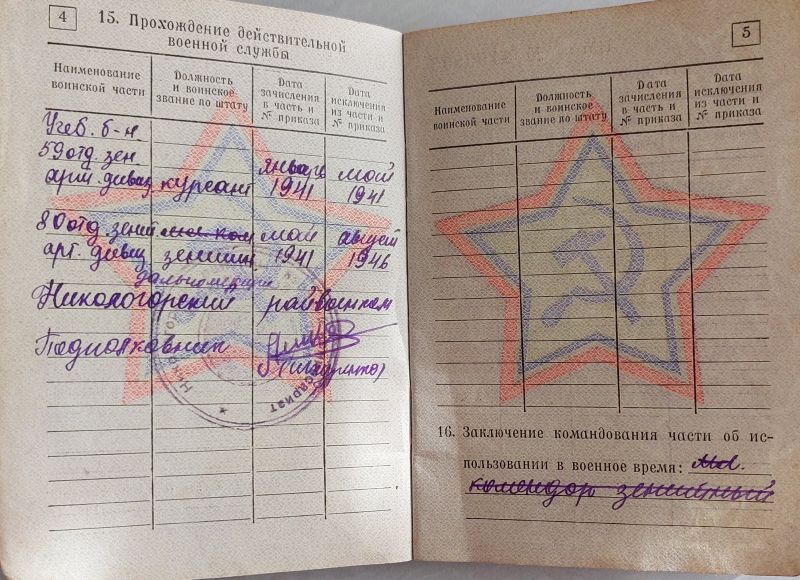 4
15. Прохождение действительной
военной службы
Наименование воинской части
Должность и воинское звание по штату
Дата зачисления в часть и № приказа
Дата исключения из части и № приказа
Учеб. б-н
59 отд. зен
арт. дивиз курсант январь 1941 май 1941
80 отд. зенит мл. ком май август
арт. дивиз зенитн. 1941 1946
дальномерщик
Никологорский райвоенком
Подполковник
5
Наименование воинской части
Должность и воинское звание по штату
Дата зачисления в часть и № приказа
Дата исключения из части и № приказа
16. Заключение командования части об ис-
пользовании в военное время: мл.
комендор зенитный